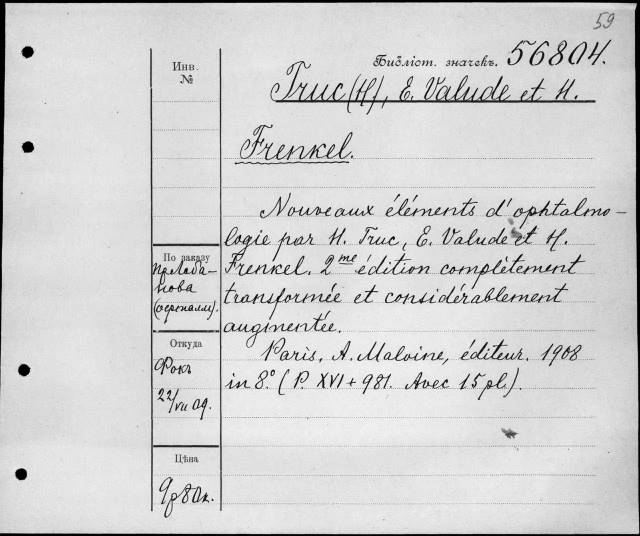 59
Библіот. значекъ. 56804.
Инв.
№
Truc (H), E. Valude et H.
Frenkel.
Nouveaux éléments d'ophtalmo-
logie par H. Truc, E. Valude et H.
Frenkel. 2me édition complètement
transformée et considérablement
augmentée.
Paris, A. Maloine, éditeur. 1908
in 8.° (P. XVI + 981. Avec 15 pl.).
По заказу
пр. Лоба-
нова
Откуда
Фокъ
22/VII 09.
Цѣна
9р80к.